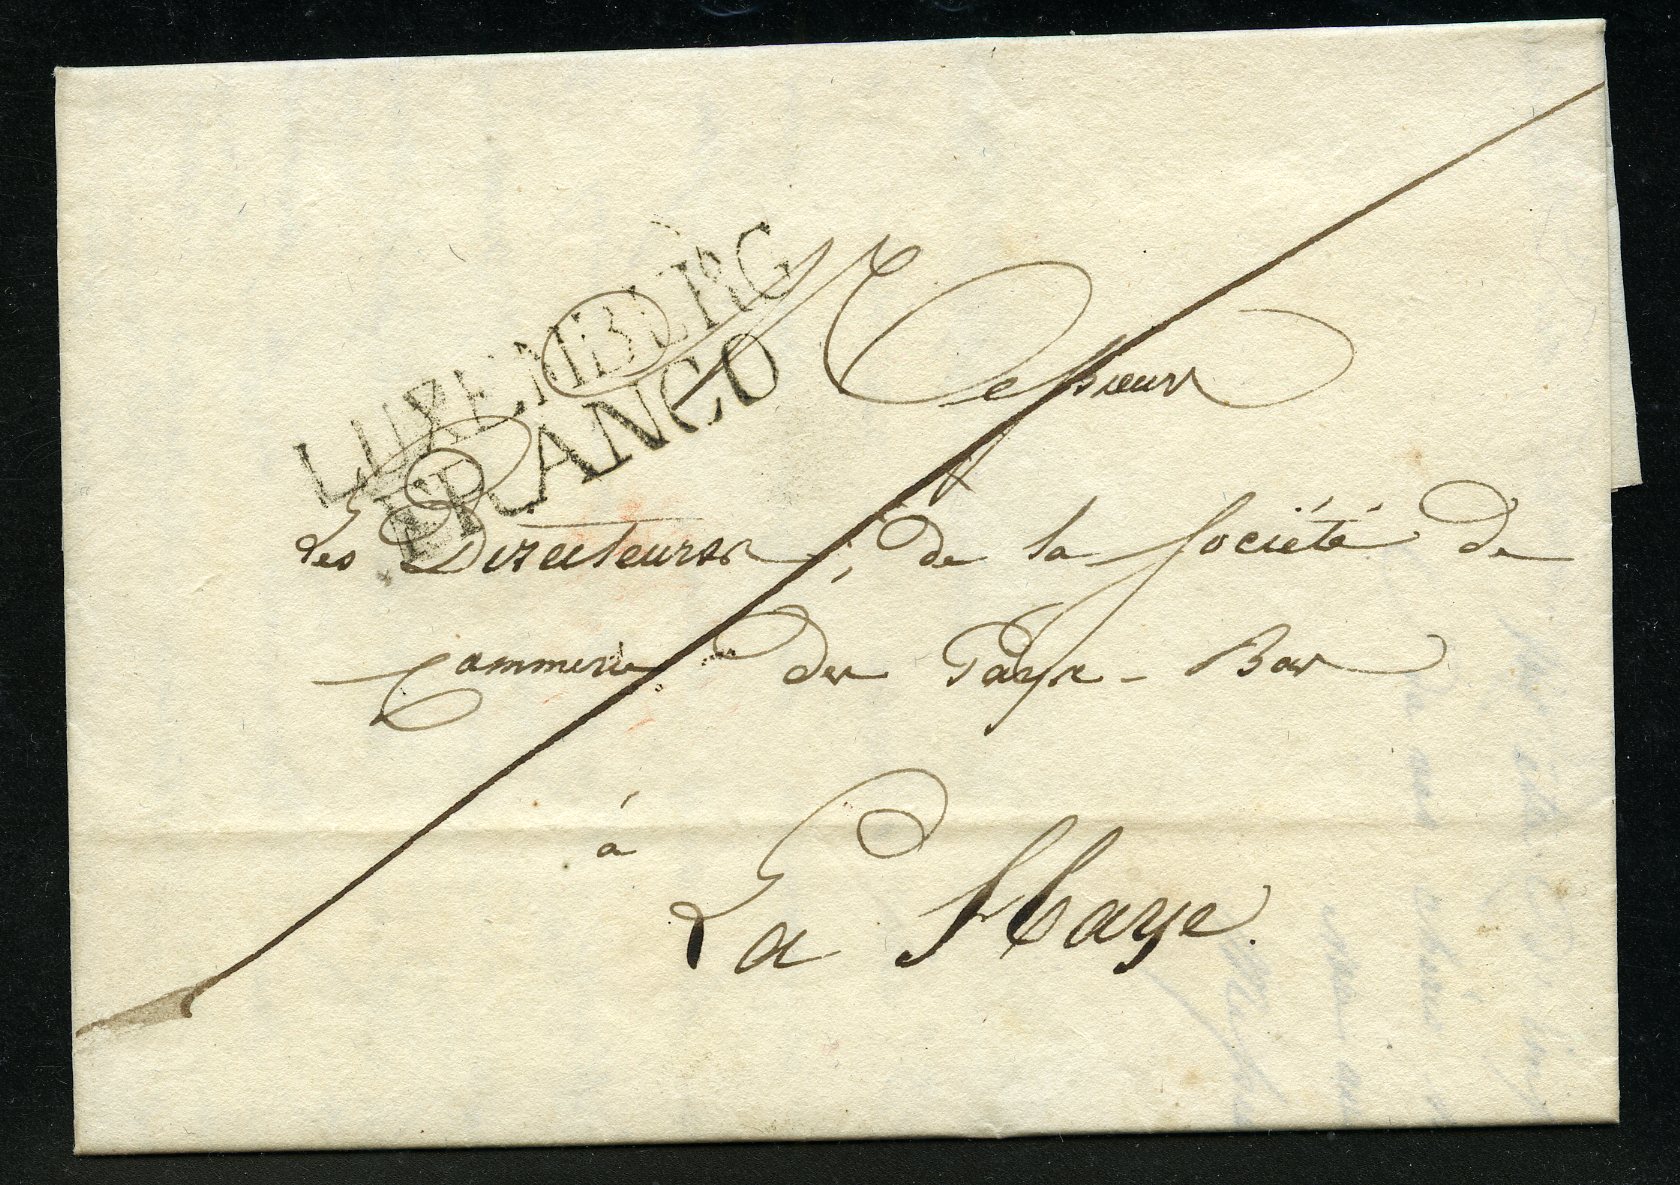 LUXEMBURG
FRANCO
Messieurs
Les Directeurs de la Société de
Commerce des Pays-Bas
à
La Haye.